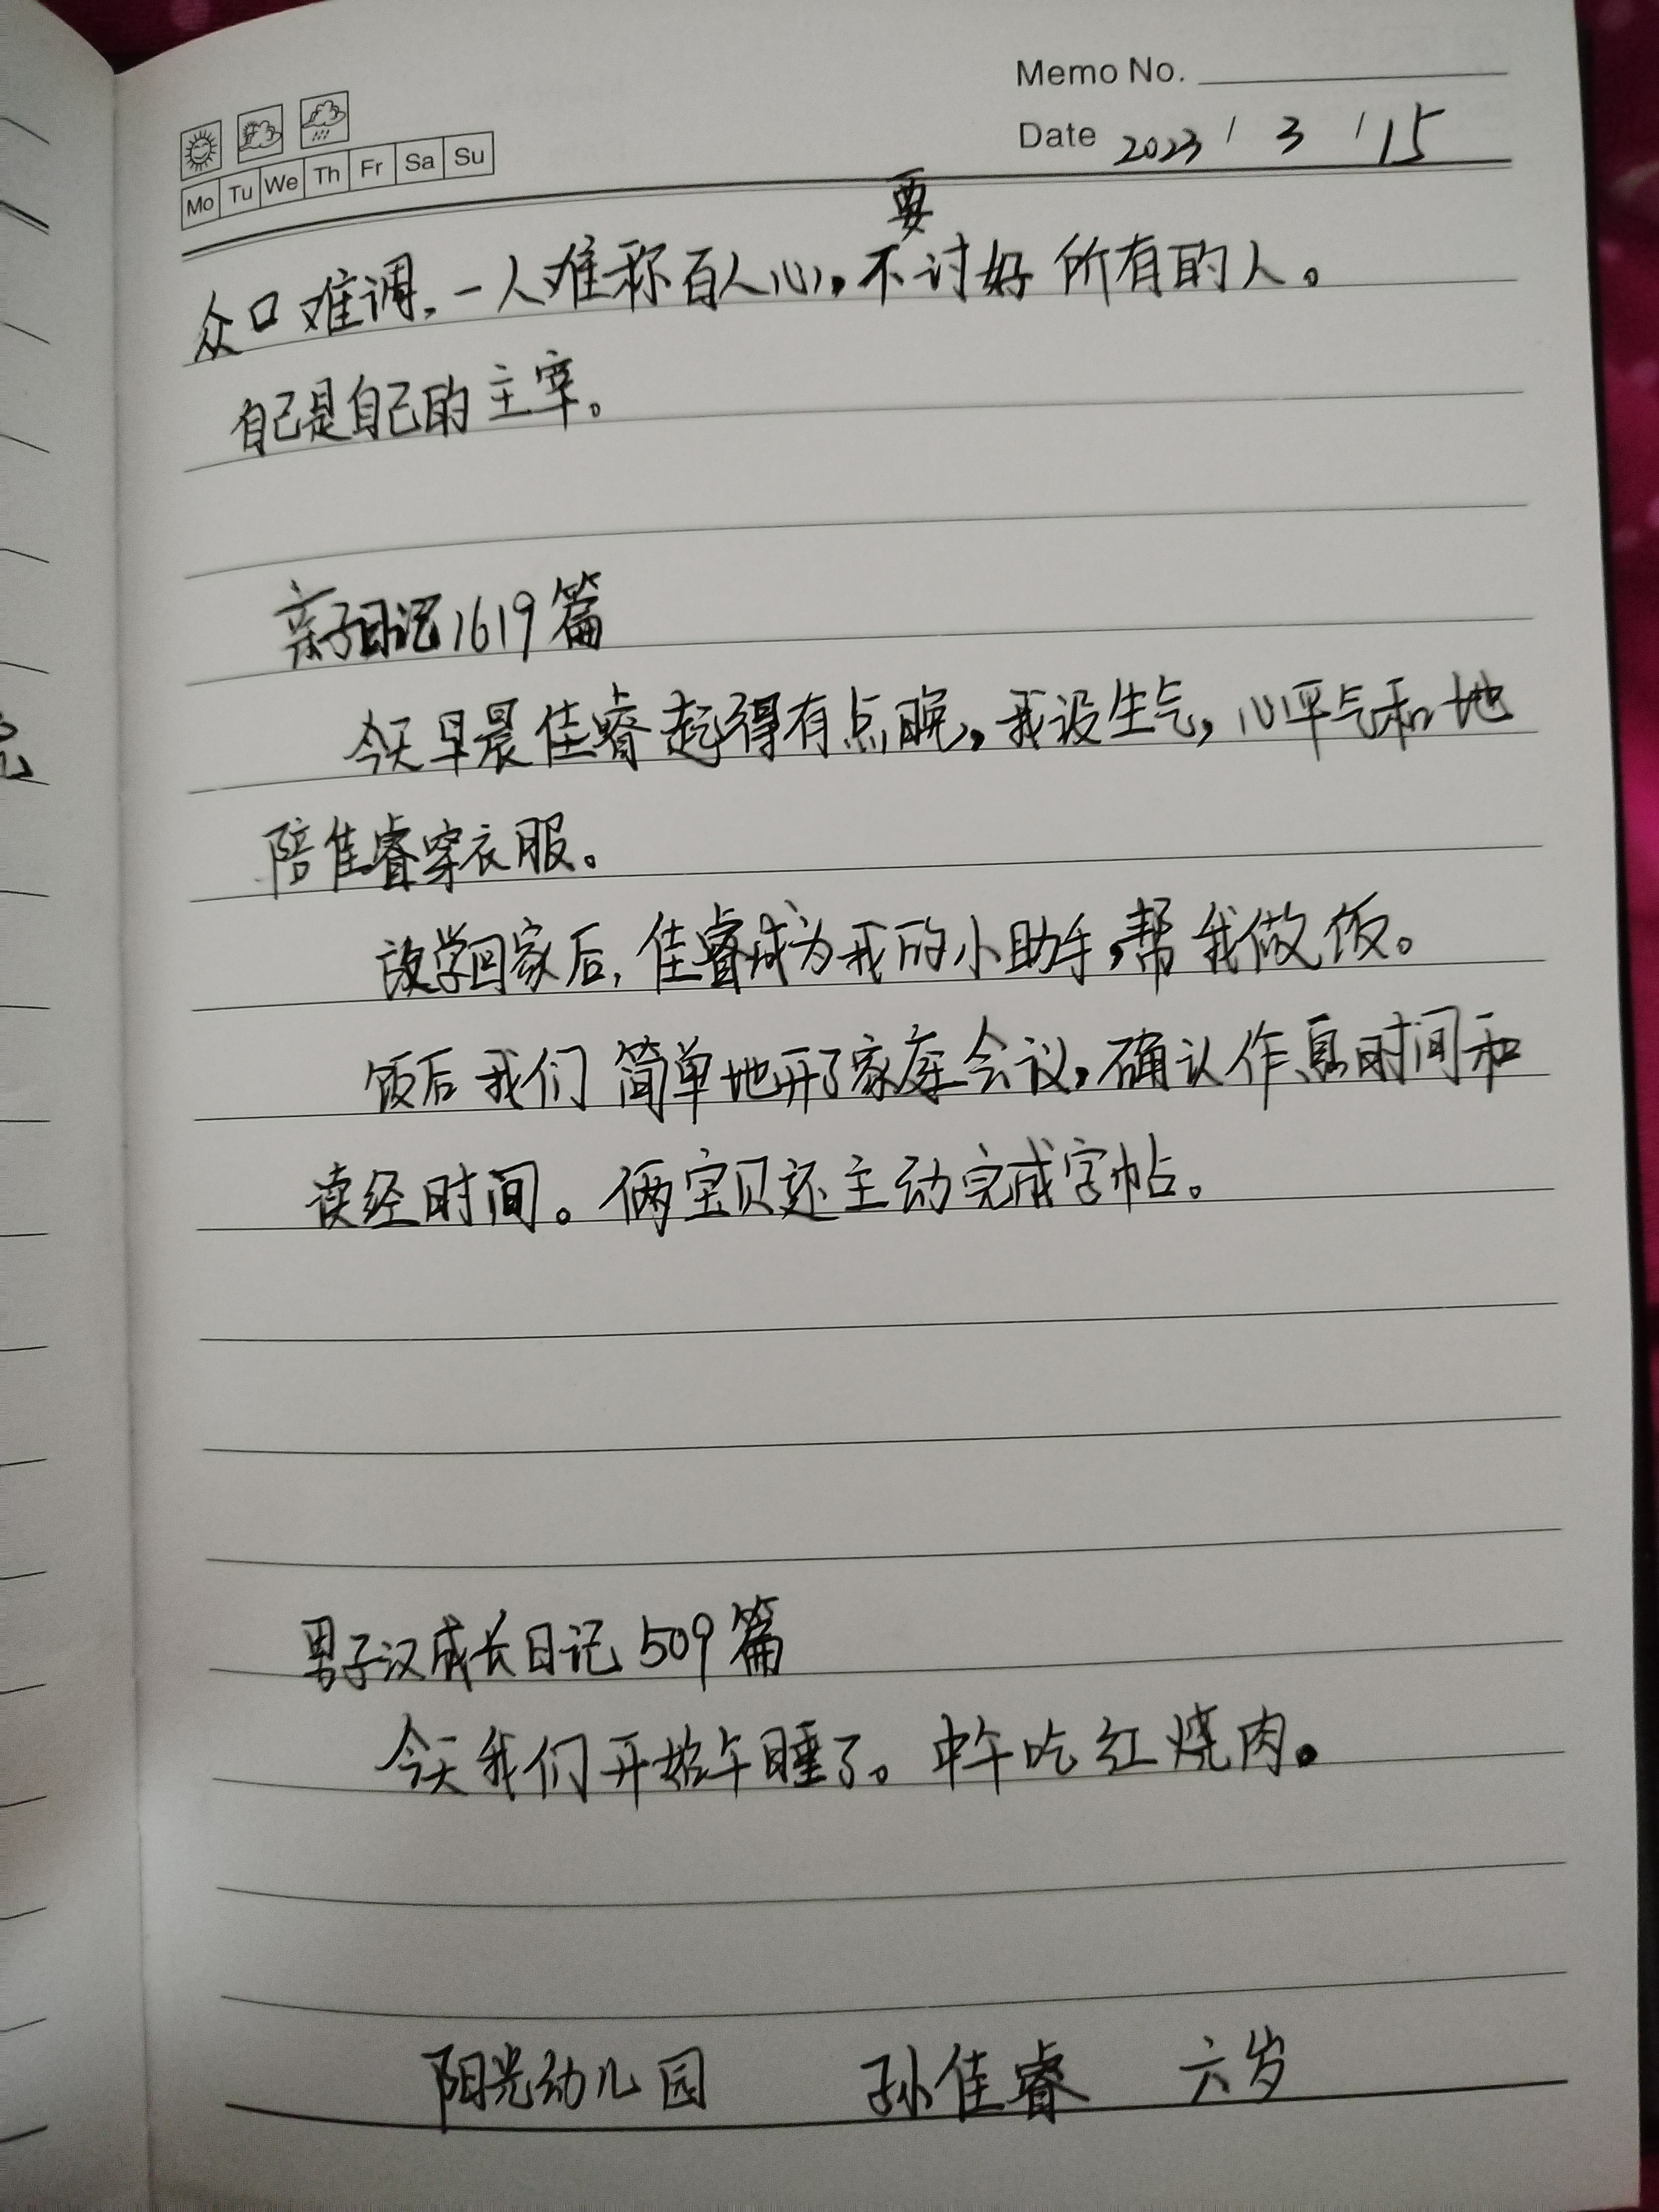 Memo No.
Date 2023 / 3 / 15
Mo Tu We Th Fr Sa Su
众口难调,一人难称百人心,不要讨好所有的人。
自己是自己的主宰。
亲子日记1619篇
今天早晨佳睿起得有点晚,我没生气,心平气和地
陪佳睿穿衣服。
放学回家后,佳睿成为我的小助手,帮我做饭。
饭后我们简单地开了家庭会议,确认作息时间和
读经时间。俩宝贝还主动完成字帖。
男子汉成长日记509篇
今天我们开始午睡了。中午吃红烧肉。
阳光幼儿园 孙佳睿 六岁